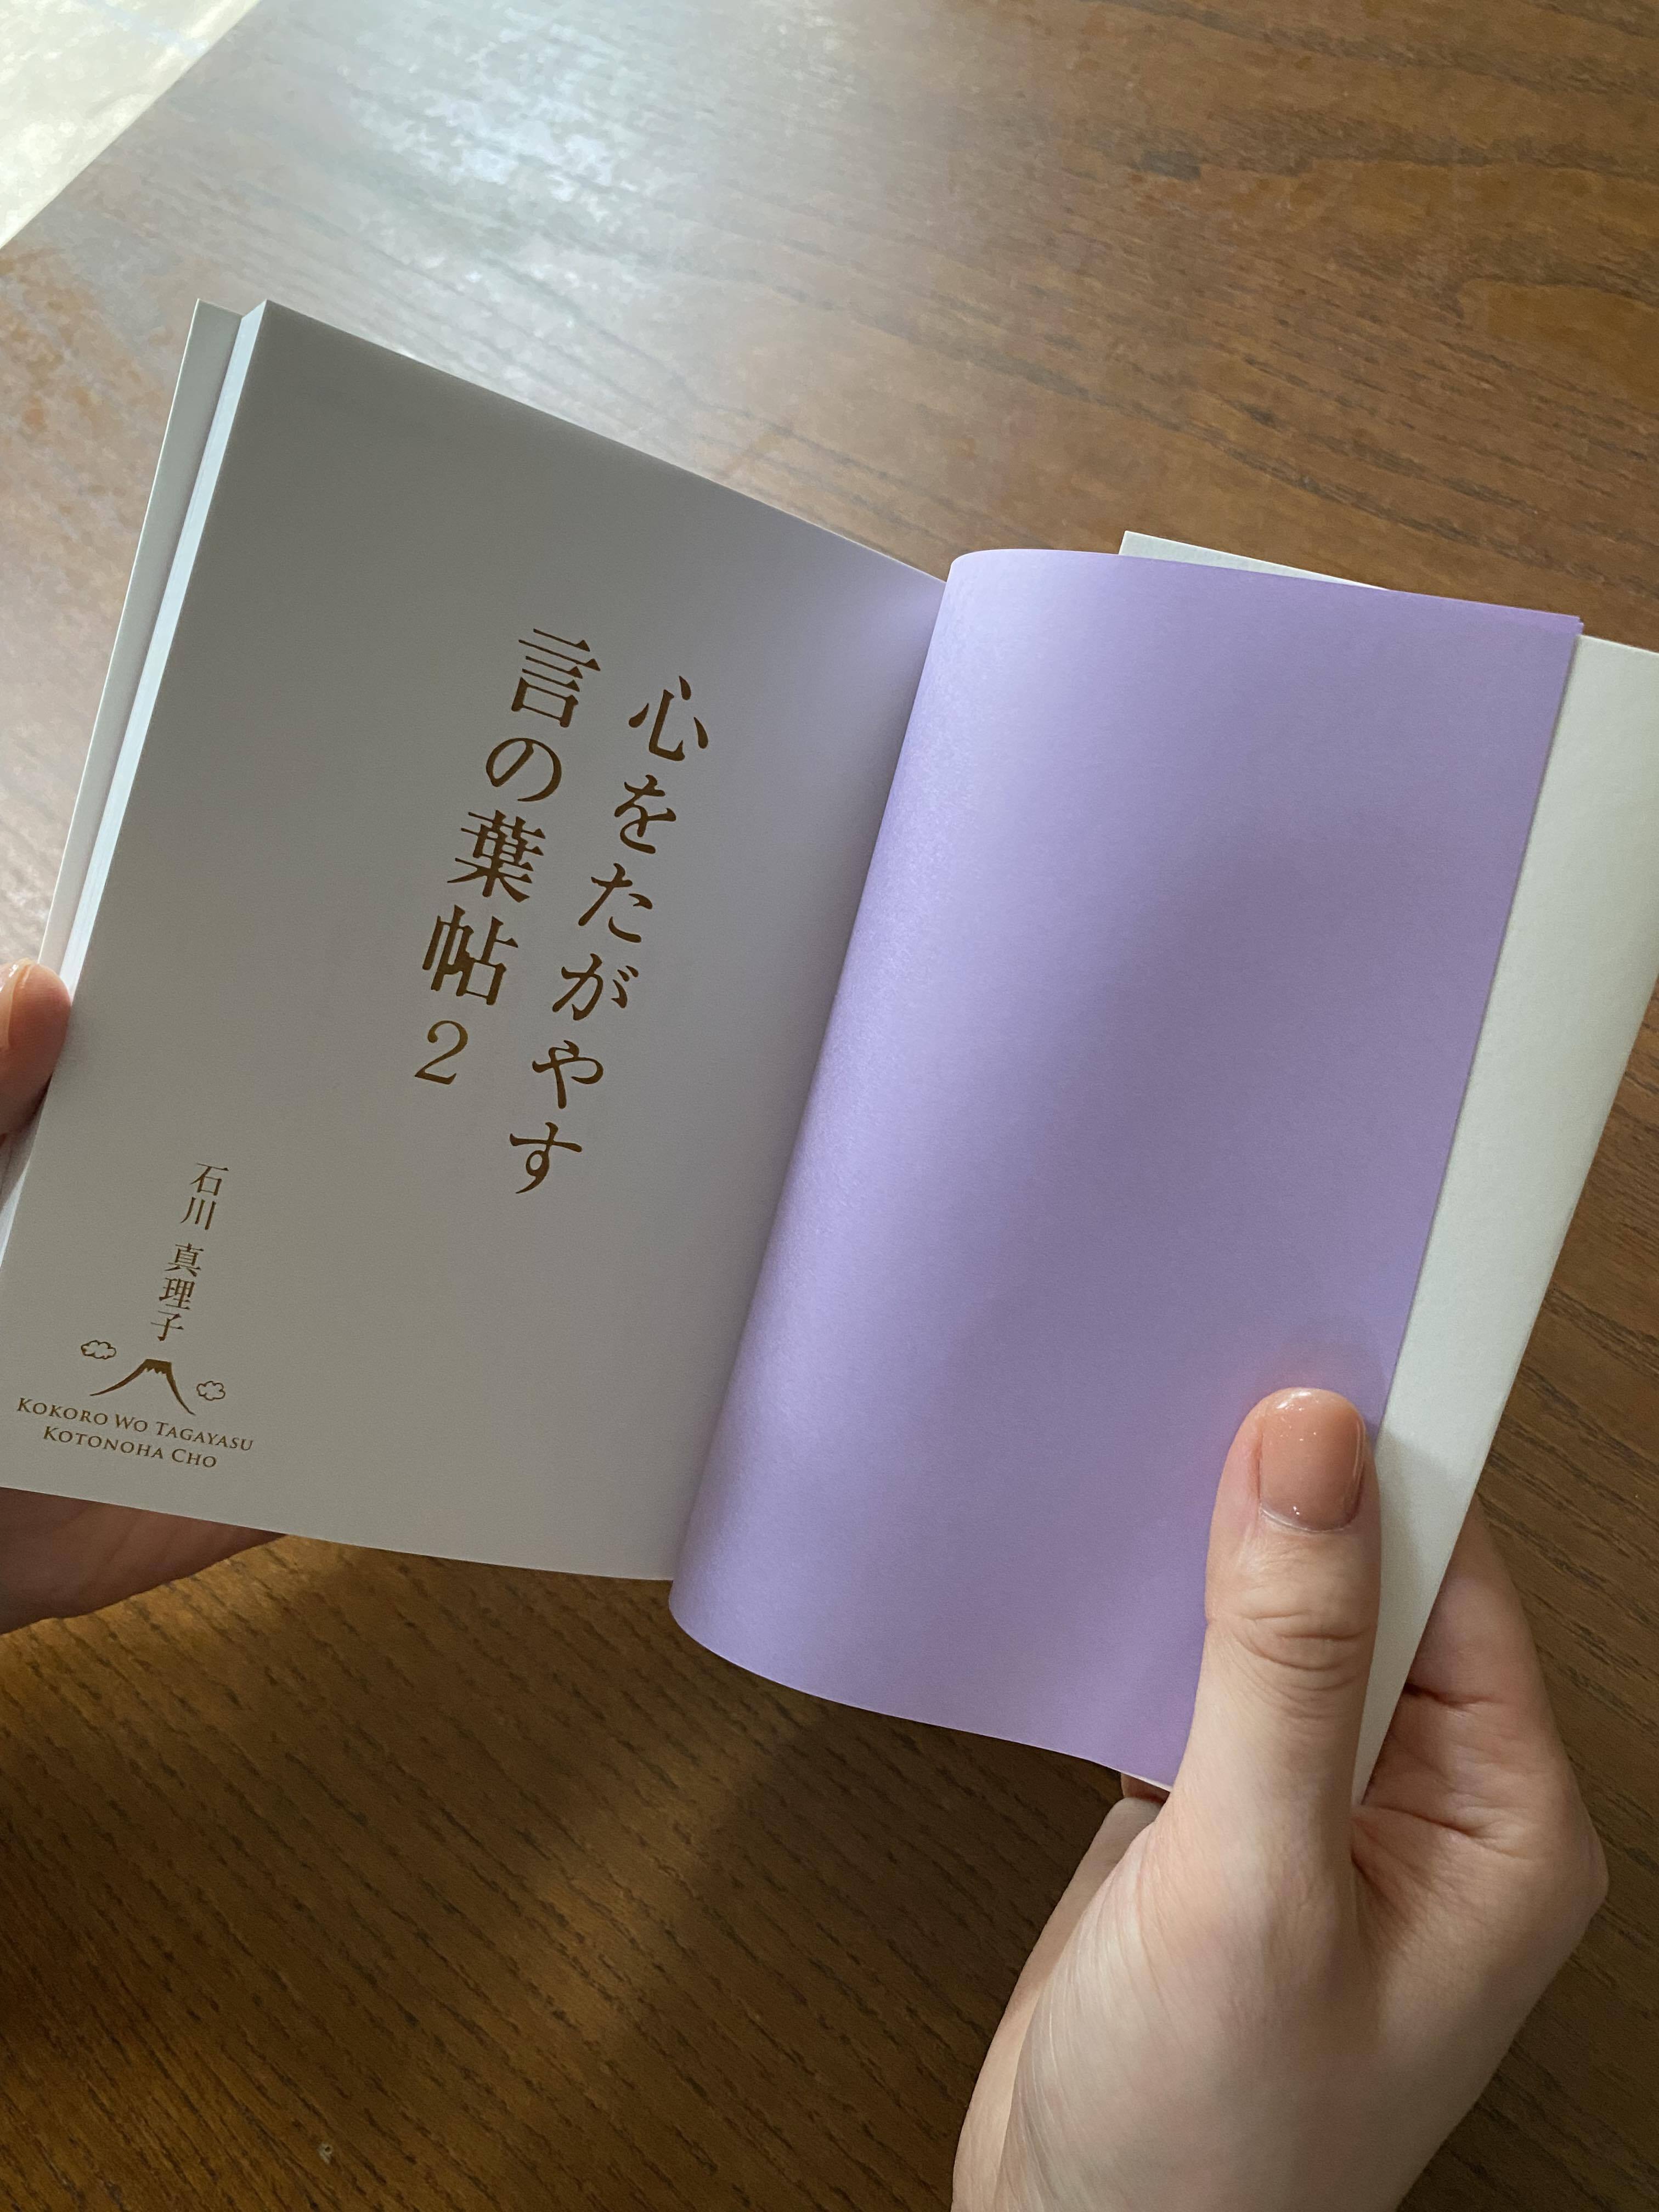 心をたがやす
言の葉帖2
石川 真理子
KOKORO WO TAGAYASU
KOTONOHA CHO